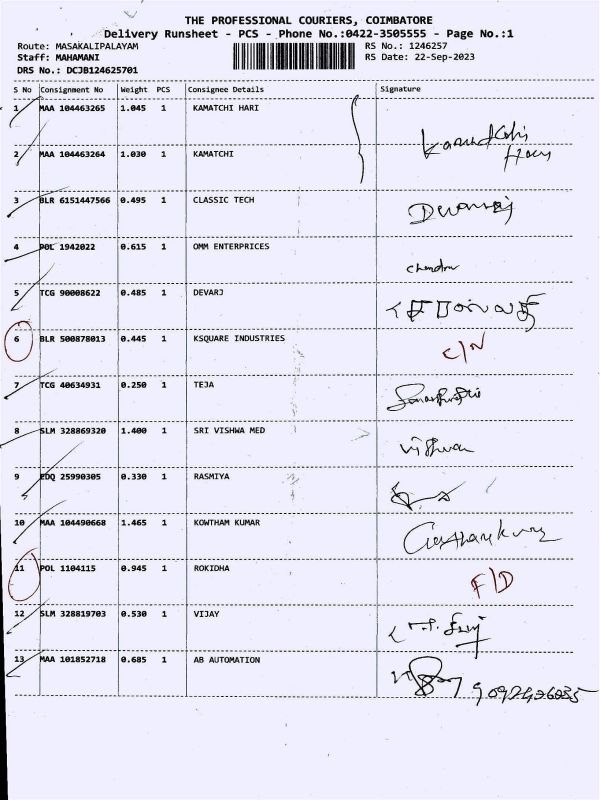 THE PROFESSIONAL COURIERS, COIMBATORE
Delivery Runsheet - PCS - Phone No.:0422-3505555 - Page No.:1
Route: MASAKALIPALAYAM RS No.: 1246257
Staff: MAHAMANI RS Date: 22-Sep-2023
DRS No.: DCJB124625701
S No Consignment No Weight PCS Consignee Details Signature
1 MAA 104463265 1.045 1 KAMATCHI HARI
2 MAA 104463264 1.030 1 KAMATCHI
3 BLR 6151447566 0.495 1 CLASSIC TECH
4 POL 1942022 0.615 1 OMM ENTERPRICES chandra
5 TCG 90008622 0.485 1 DEVARJ
6 BLR 500878013 0.445 1 KSQUARE INDUSTRIES C/N
7 TCG 40634931 0.250 1 TEJA
8 SLM 328869320 1.400 1 SRI VISHWA MED
9 EDQ 25990305 0.330 1 RASMIYA
10 MAA 104490668 1.465 1 KOWTHAM KUMAR
11 POL 1104115 0.945 1 ROKIDHA F/D
12 SLM 328819703 0.530 1 VIJAY
13 MAA 101852718 0.685 1 AB AUTOMATION